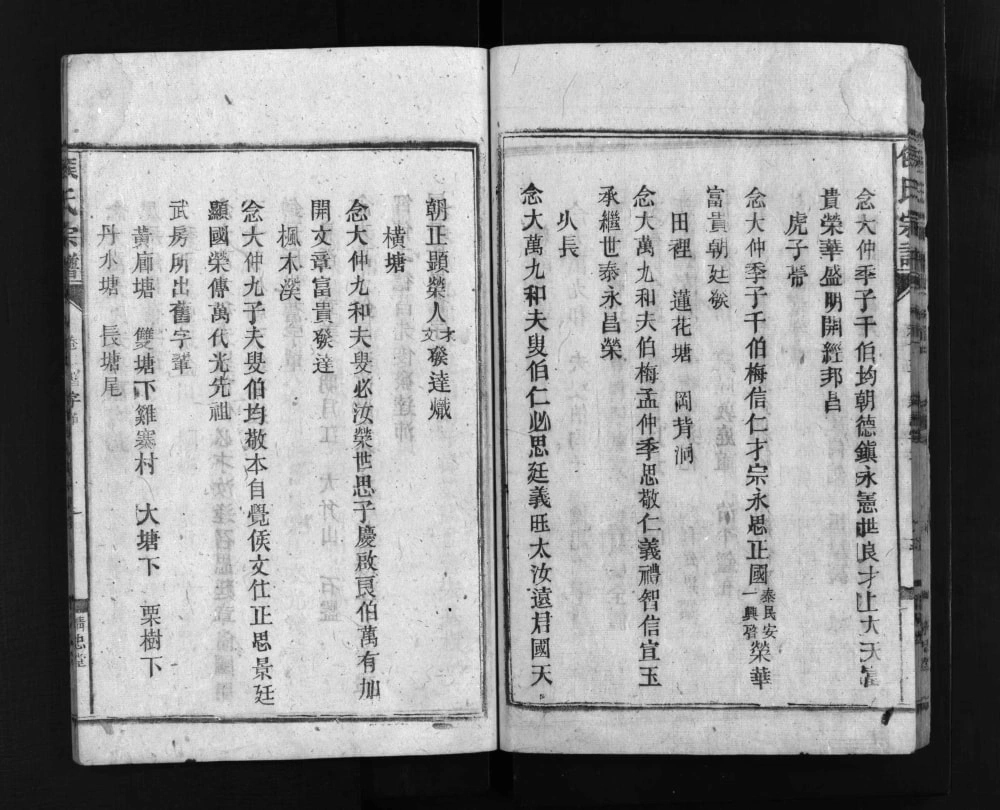 念大仲季子千伯均朝德鎭永憲世良才上大天富
貴榮華盛明開經邦昌
虎子䓣
念大仲季子千伯梅信仁才宗永思正國泰民安一興啓榮華
富貴朝廷發
田裡 蓮花塘 岡背洞
念大萬九和夫伯梅孟仲季思敬仁義禮智信宣玉
承繼世泰永昌榮
火長
念大萬九和夫叟伯仁必思廷義旺太汝遠君國天
朝正顕榮人才文發達熾
橫塘
念大仲九和夫叟必汝榮世思子慶啟良伯萬有加
開文章富貴發達
楓木漤
念大仲九子夫叟伯均敬本自覺侯文仕正思景廷
顕國榮傳萬代光先祖
武房所出舊字輩
黃庙塘 雙塘下雞寨村 大塘下 栗樹下
丹水塘 長塘尾
侯氏宗譜
忠堂